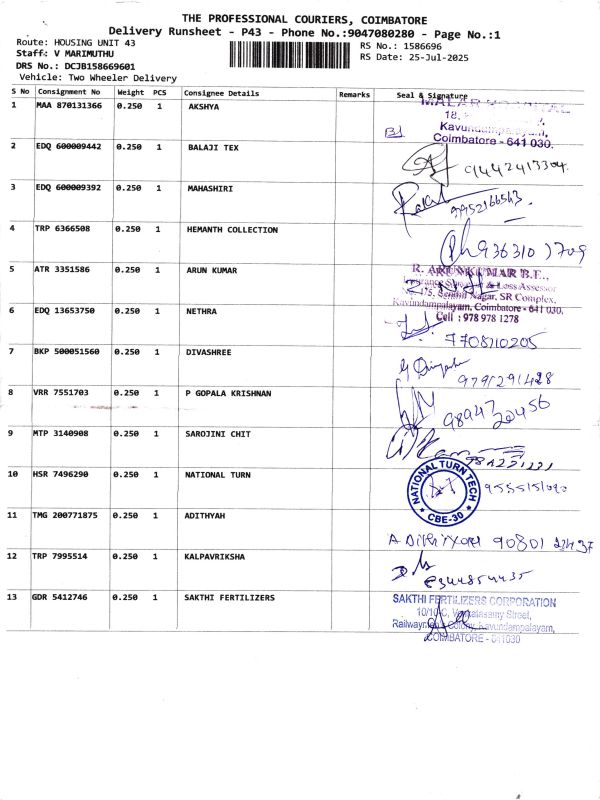 THE PROFESSIONAL COURIERS, COIMBATORE
Delivery Runsheet - P43 - Phone No.:9047080280 - Page No.:1
Route: HOUSING UNIT 43
Staff: V MARIMUTHU
DRS No.: DCJB158669601
Vehicle: Two Wheeler Delivery
RS No.: 1586696
RS Date: 25-Jul-2025
S No Consignment No Weight PCS Consignee Details Remarks Seal & Signature
1 MAA 870131366 0.250 1 AKSHYA
18,
Kavundampalayam,
Coimbatore - 641 030.
2 EDQ 600009442 0.250 1 BALAJI TEX 9442413304
3 EDQ 600009392 0.250 1 MAHASHIRI 9952166563
4 TRP 6366508 0.250 1 HEMANTH COLLECTION Ph 9363107709
5 ATR 3351586 0.250 1 ARUN KUMAR
R. ARUN KUMAR B.E.,
Insurance & Loss Assessor
No. 475, Nagar, SR Complex,
Kavundampalayam, Coimbatore - 641 030.
Cell : 978 978 1278
6 EDQ 13653750 0.250 1 NETHRA 7708110205
7 BKP 500051560 0.250 1 DIVASHREE 9791291428
8 VRR 7551703 0.250 1 P GOPALA KRISHNAN 9894720456
9 MTP 3140908 0.250 1 SAROJINI CHIT
10 HSR 7496290 0.250 1 NATIONAL TURN
NATIONAL TURN TECH
* CBE-30 *
11 TMG 200771875 0.250 1 ADITHYAH 90801 22437
12 TRP 7995514 0.250 1 KALPAVRIKSHA 8344854435
13 GDR 5412746 0.250 1 SAKTHI FERTILIZERS
SAKTHI FERTILIZERS CORPORATION
10/10-C, Venkatasamy Street,
Colony, Kavundampalayam,
COIMBATORE - 641030